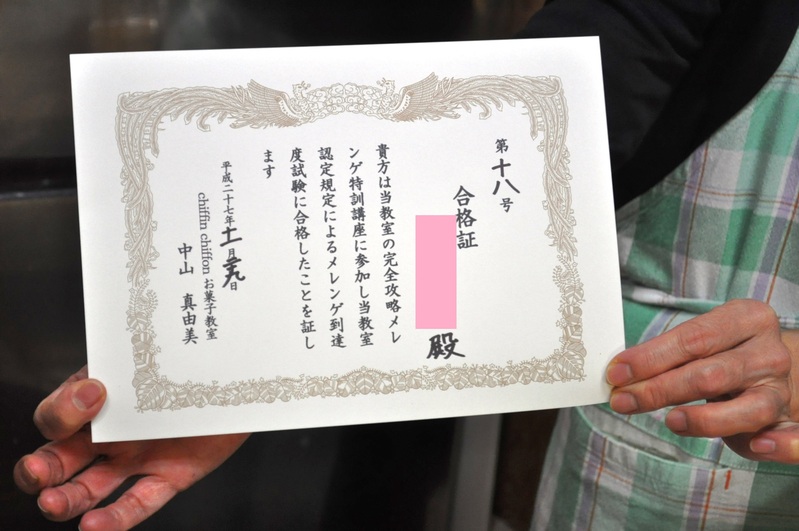 第十八号
合格証
殿
貴方は当教室の完全攻略メレ
ンゲ特訓講座に参加し当教室
認定規定によるメレンゲ到達
度試験に合格したことを証し
ます
平成二十七年十一月二九日
chiffin chiffon お菓子教室
中山 真由美